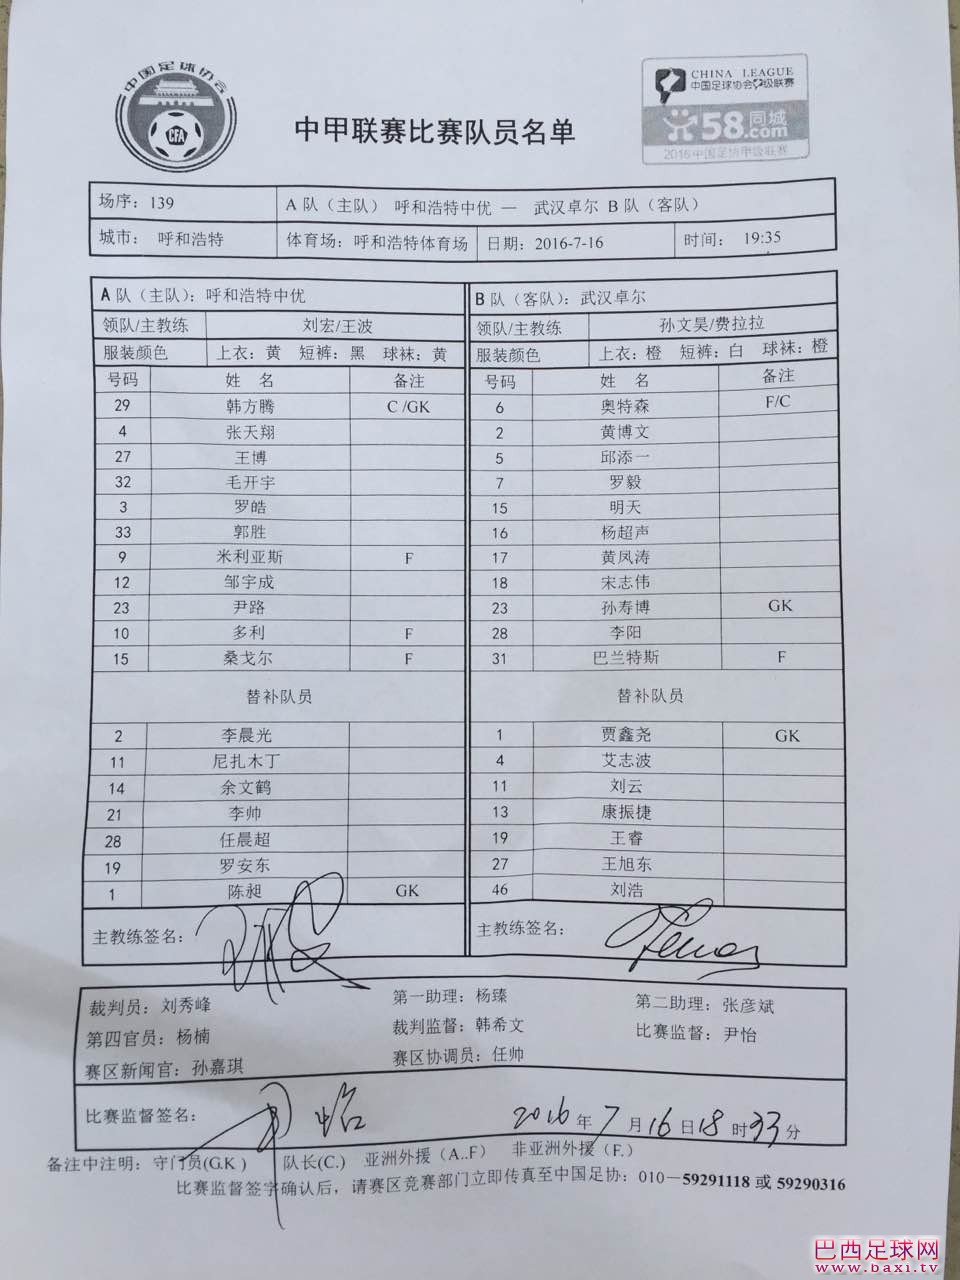 中国足球协会
CFA
中甲联赛比赛队员名单
CHINA LEAGUE
中国足球协会甲级联赛
58同城
.com
2016中国足协甲级联赛
场序：139 A 队（主队） 呼和浩特中优 — 武汉卓尔 B 队（客队）
城市： 呼和浩特 体育场：呼和浩特体育场 日期：2016-7-16 时间： 19:35
A 队（主队）：呼和浩特中优 B 队（客队）：武汉卓尔
领队/主教练 刘宏/王波 领队/主教练 孙文昊/费拉拉
服装颜色 上衣：黄 短裤：黑 球袜：黄 服装颜色 上衣：橙 短裤：白 球袜：橙
号码 姓 名 备注 号码 姓 名 备注
29 韩方腾 C /GK 6 奥特森 F/C
4 张天翔 2 黄博文
27 王博 5 邱添一
32 毛开宇 7 罗毅
3 罗皓 15 明天
33 郭胜 16 杨超声
9 米利亚斯 F 17 黄凤涛
12 邹宇成 18 宋志伟
23 尹路 23 孙寿博 GK
10 多利 F 28 李阳
15 桑戈尔 F 31 巴兰特斯 F
替补队员 替补队员
2 李晨光 1 贾鑫尧 GK
11 尼扎木丁 4 艾志波
14 余文鹤 11 刘云
21 李帅 13 康振捷
28 任晨超 19 王睿
19 罗安东 27 王旭东
1 陈昶 GK 46 刘浩
主教练签名： 主教练签名：
裁判员：刘秀峰 第一助理：杨臻 第二助理：张彦斌
第四官员：杨楠 裁判监督：韩希文 比赛监督：尹怡
赛区新闻官：孙嘉琪 赛区协调员：任帅
比赛监督签名： 尹怡 2016 年 7 月 16 日 18 时 33 分
备注中注明：守门员(G.K ) 队长(C.) 亚洲外援（A..F） 非亚洲外援（F.）
比赛监督签字确认后，请赛区竞赛部门立即传真至中国足协：010—59291118 或 59290316
巴西足球网
www.baxi.tv